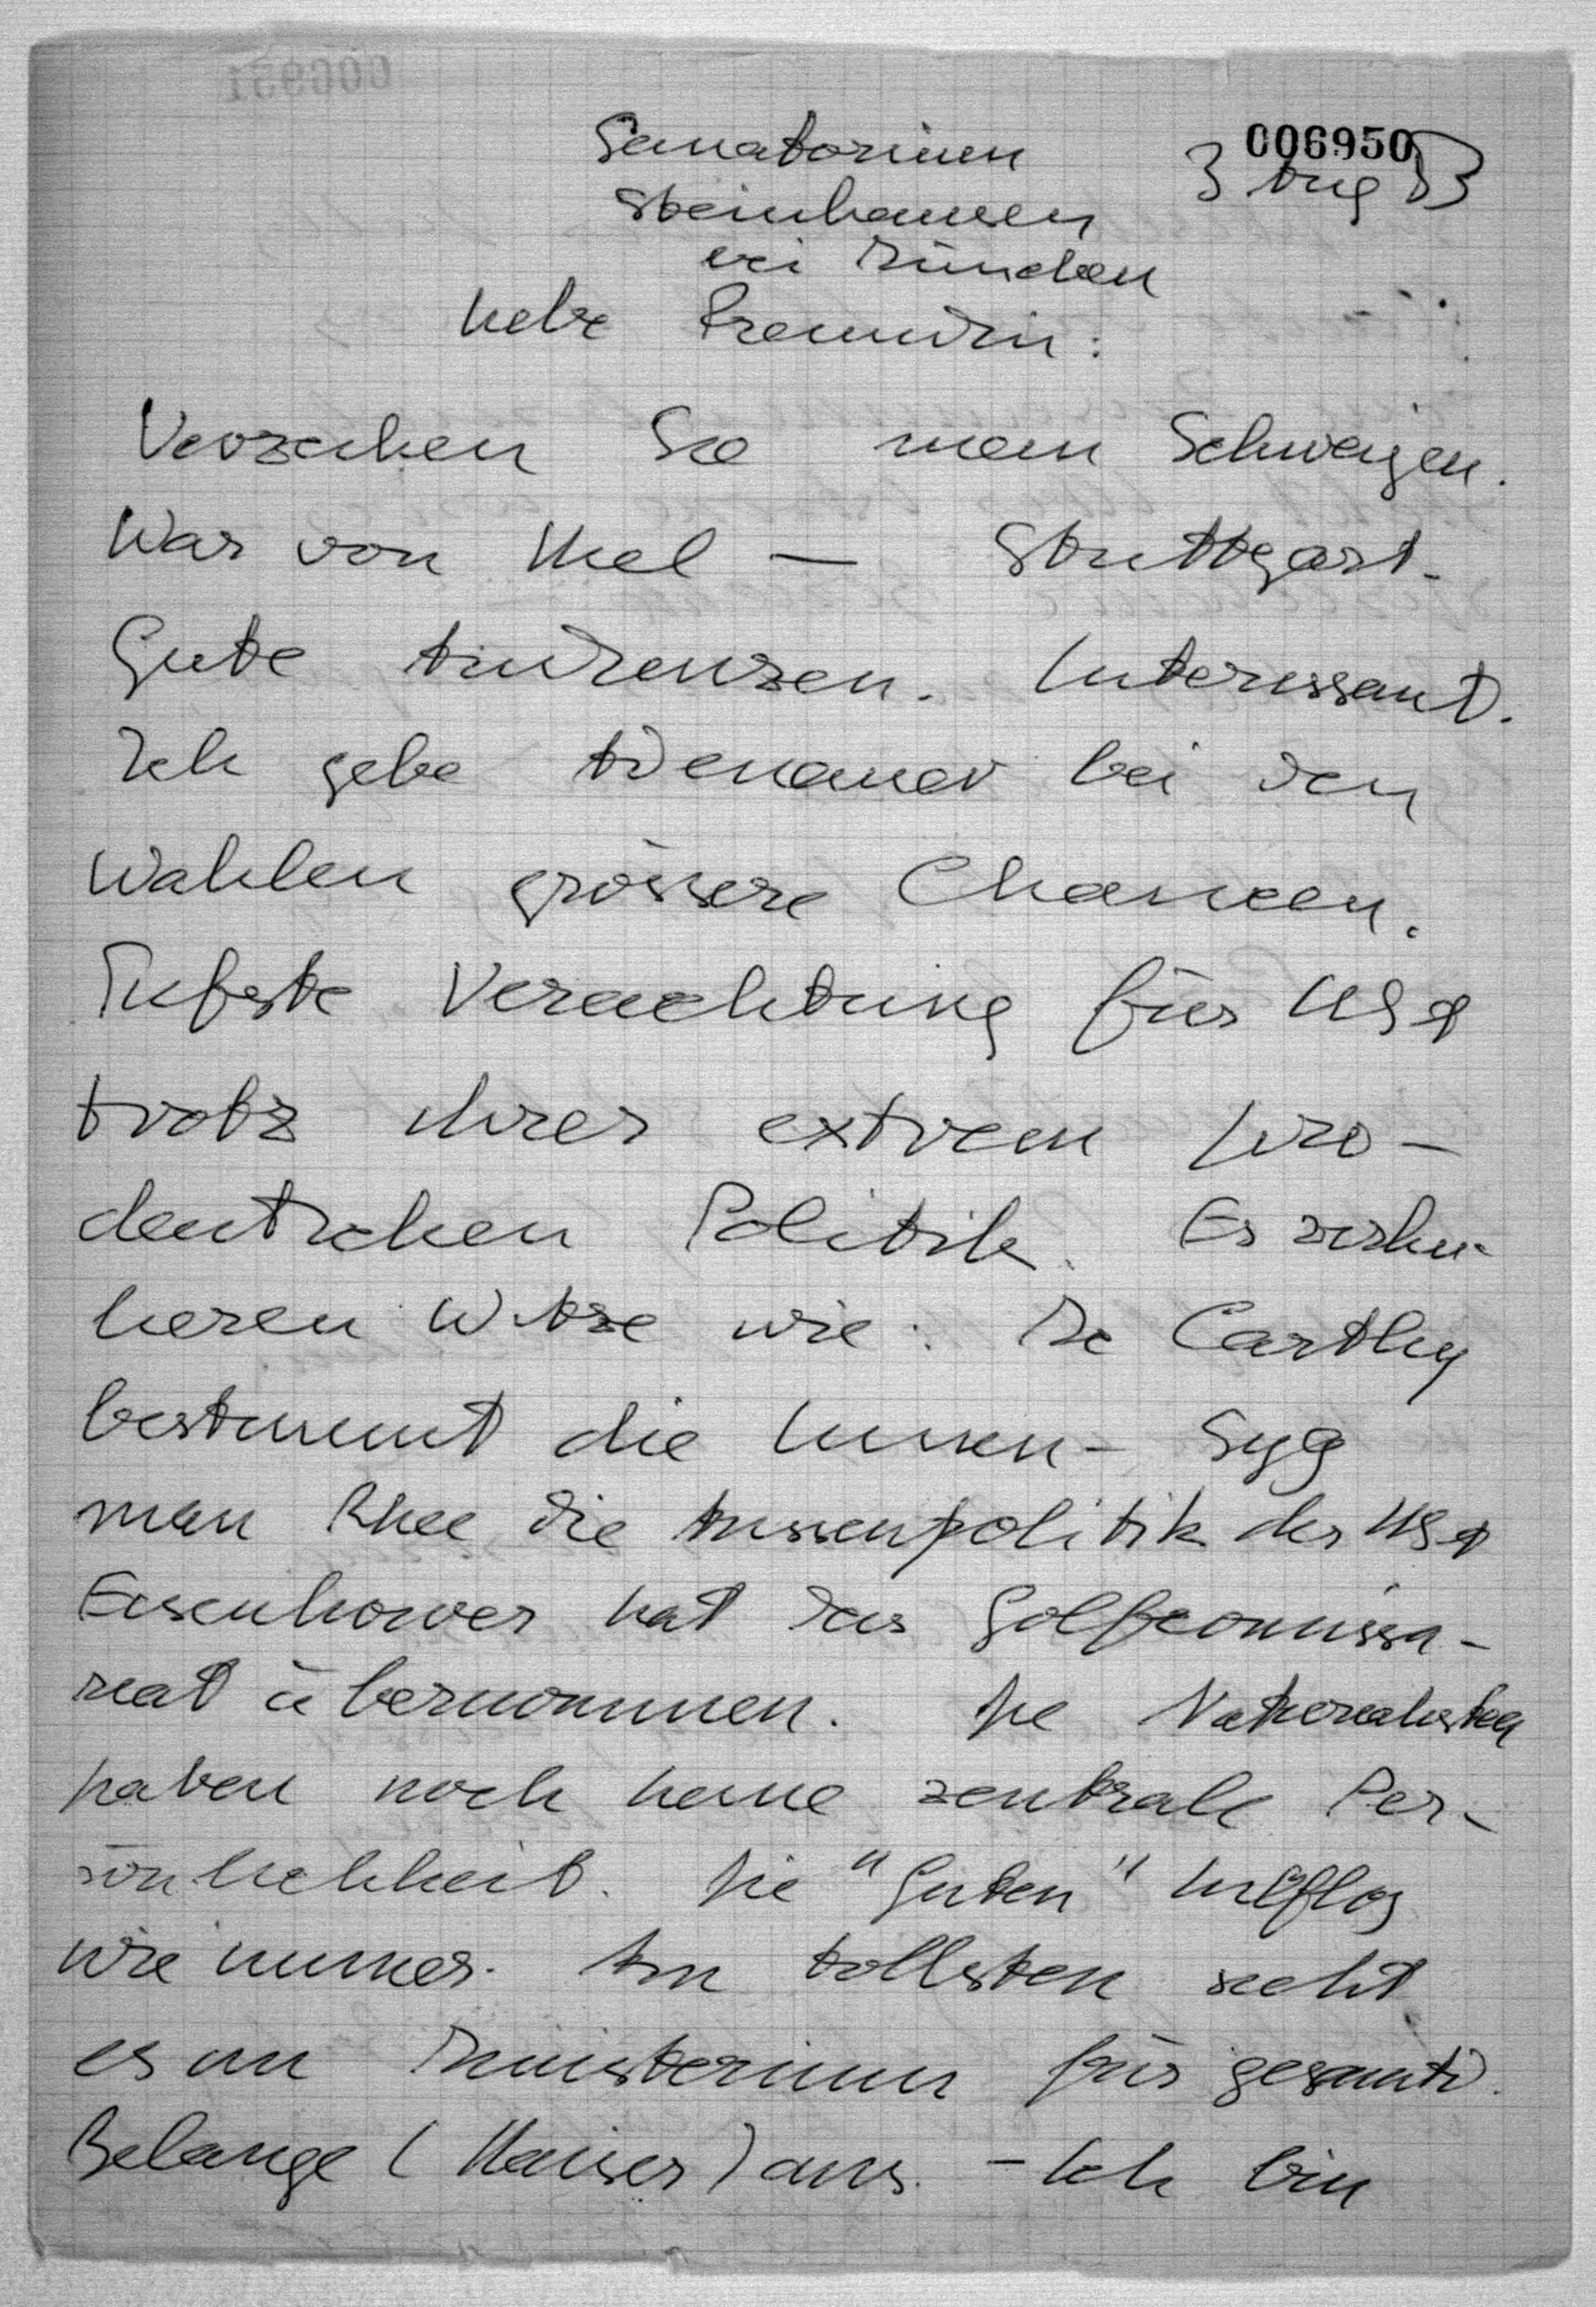 006950
Sanatorium 3 Aug 53
Steinhausen
bei München
Liebe Freundin:
Verzeihen Sie mein Schweigen.
War von Kiel — Stuttgart.
Gute Audienzen. Interessant.
Ich gebe Adenauer bei den
Wahlen grössere Chancen.
Tiefste Verachtung für USA
trotz ihrer extrem pro-
deutschen Politik. Es zirku-
lieren Witze wie: Mc Carthy
bestimmt die Innen- Syg
man Rhee die Aussenpolitik der USA
Eisenhower hat das Golfcomissa-
riat übernommen. Die Nationalisten
haben noch keine zentrale Per-
sönlichkeit. Die "Guten" hilflos
wie immer. Am tollsten sieht
es im Ministerium für gesamtd.
Belange (Kaiser) aus. - Ich bin